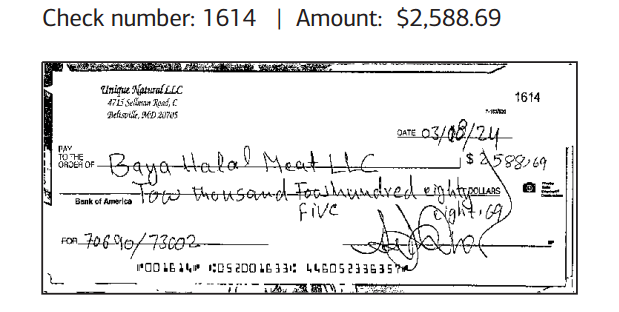 Check number: 1614 | Amount: $2,588.69
Unique Natural LLC
4715 Sellman Road, C
Beltsville, MD 20705
1614
DATE 03/08/24
PAY
TO THE
ORDER OF Baya Halal Meat LLC $ 2588,69
Tow thousand Fow hundred eighty DOLLARS
Five eight, 69
Bank of America
FOR 70690/73602
⑈001614⑈ ⑆052001633⑆ 446052336357⑈